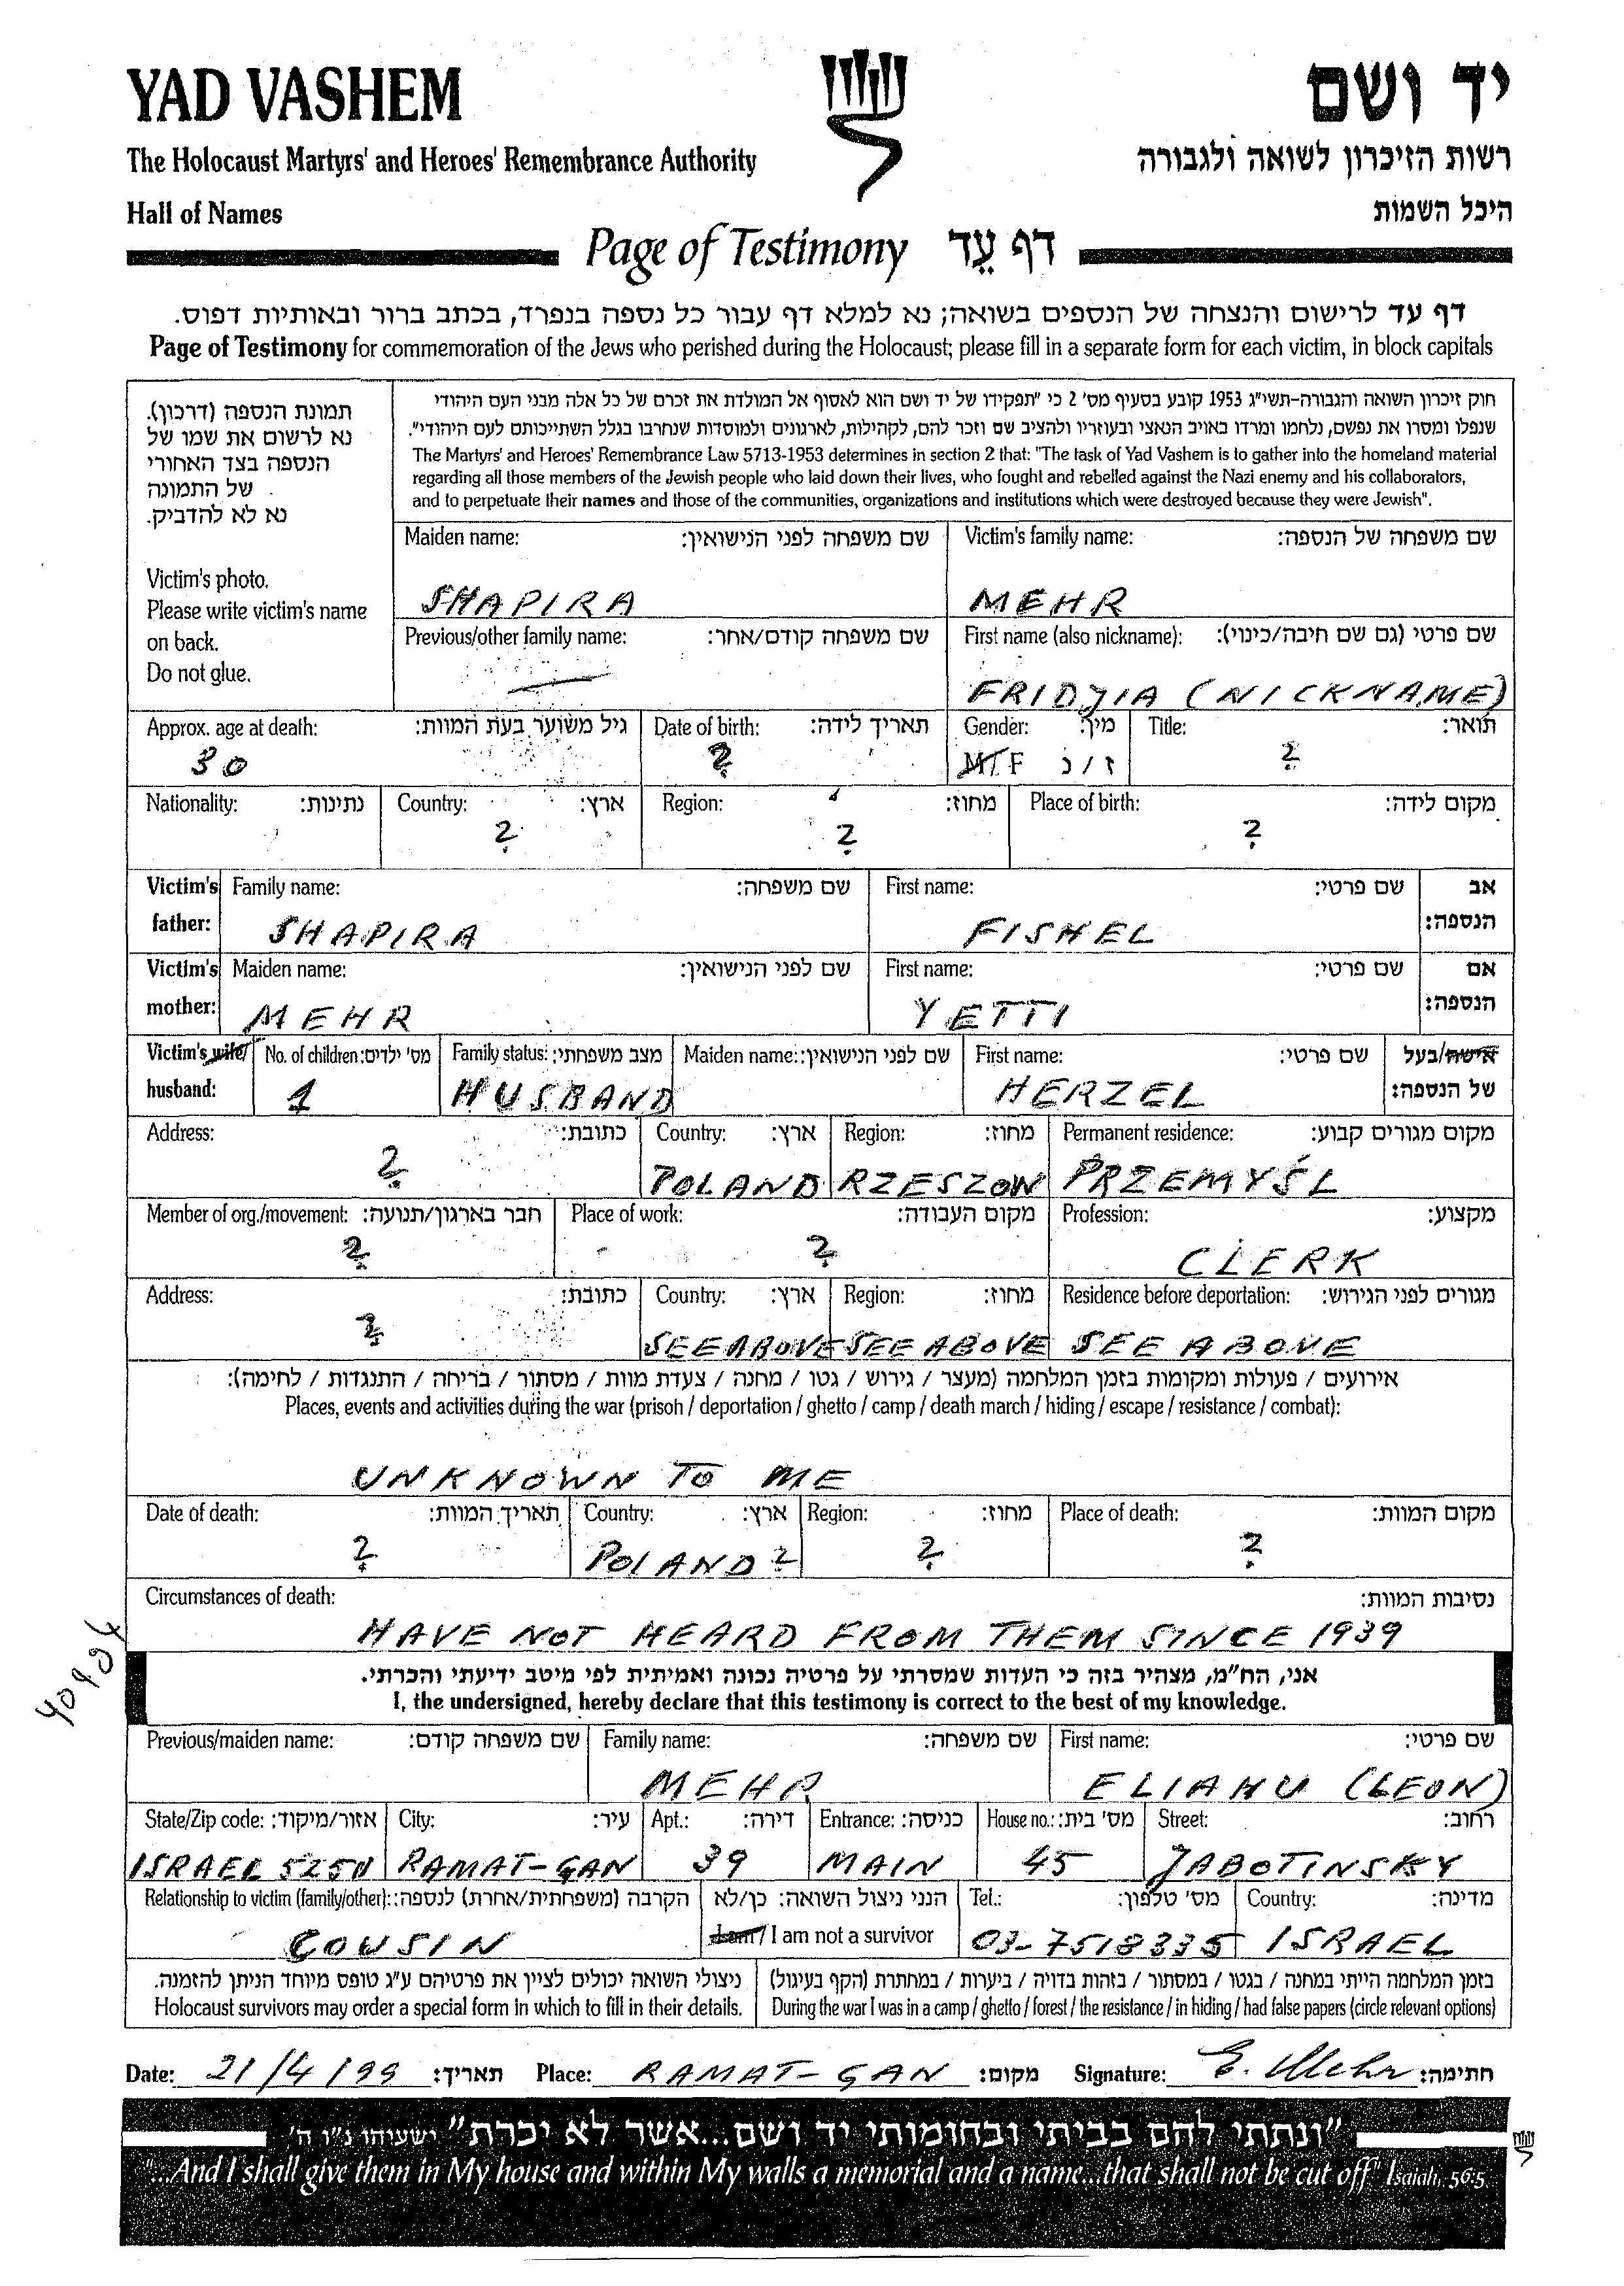 YAD VASHEM
יד ושם
The Holocaust Martyrs' and Heroes' Remembrance Authority
רשות הזיכרון לשואה ולגבורה
Hall of Names
היכל השמות
Page of Testimony דף עֵד
דף עד לרישום והנצחה של הנספים בשואה; נא למלא דף עבור כל נספה בנפרד, בכתב ברור ובאותיות דפוס.
Page of Testimony for commemoration of the Jews who perished during the Holocaust; please fill in a separate form for each victim, in block capitals
תמונת הנספה (דרכון).
נא לרשום את שמו של
הנספה בצד האחורי
של התמונה
נא לא להדביק.
Victim's photo.
Please write victim's name
on back.
Do not glue.
חוק זיכרון השואה והגבורה-תשי"ג 1953 קובע בסעיף מס' 2 כי "תפקידו של יד ושם הוא לאסוף אל המולדת את זכרם של כל אלה מבני העם היהודי
שנפלו ומסרו את נפשם, נלחמו ומרדו באויב הנאצי ובעוזריו ולהציב שם וזכר להם, לקהילות, לארגונים ולמוסדות שנחרבו בגלל השתייכותם לעם היהודי".
The Martyrs' and Heroes' Remembrance Law 5713-1953 determines in section 2 that: "The task of Yad Vashem is to gather into the homeland material
regarding all those members of the Jewish people who laid down their lives, who fought and rebelled against the Nazi enemy and his collaborators,
and to perpetuate their names and those of the communities, organizations and institutions which were destroyed because they were Jewish".
Maiden name: שם משפחה לפני הנישואין: Victim's family name: שם משפחה של הנספה:
SHAPIRA MEHR
Previous/other family name: שם משפחה קודם/אחר: First name (also nickname): שם פרטי (גם שם חיבה/כינוי):
— FRIDJIA (NICKNAME)
Approx. age at death: גיל משוער בעת המוות: Date of birth: תאריך לידה: Gender: מין: Title: תואר:
30 ? M/F ז/נ ?
Nationality: נתינות: Country: ארץ: Region: מחוז: Place of birth: מקום לידה:
? ? ?
Victim's father: Family name: שם משפחה: First name: שם פרטי: אב הנספה:
SHAPIRA FISHEL
Victim's mother: Maiden name: שם לפני הנישואין: First name: שם פרטי: אם הנספה:
MEHR YETTI
Victim's wife/ husband: No. of children: מס' ילדים: Family status: מצב משפחתי: Maiden name: שם לפני הנישואין: First name: שם פרטי: אישה/בעל של הנספה:
1 HUSBAND HERZEL
Address: כתובת: Country: ארץ: Region: מחוז: Permanent residence: מקום מגורים קבוע:
? POLAND RZESZOW PRZEMYŚL
Member of org./movement: חבר בארגון/תנועה: Place of work: מקום העבודה: Profession: מקצוע:
? ? CLERK
Address: כתובת: Country: ארץ: Region: מחוז: Residence before deportation: מגורים לפני הגירוש:
? SEE ABOVE SEE ABOVE SEE ABOVE
אירועים / פעולות ומקומות בזמן המלחמה (מעצר / גירוש / גטו / מחנה / צעדת מוות / מסתור / בריחה / התנגדות / לחימה):
Places, events and activities during the war (prison / deportation / ghetto / camp / death march / hiding / escape / resistance / combat):
UNKNOWN TO ME
Date of death: תאריך המוות: Country: ארץ: Region: מחוז: Place of death: מקום המוות:
? POLAND ? ? ?
Circumstances of death: נסיבות המוות:
HAVE NOT HEARD FROM THEM SINCE 1939
אני, הח"מ, מצהיר בזה כי העדות שמסרתי על פרטיה נכונה ואמיתית לפי מיטב ידיעתי והכרתי.
I, the undersigned, hereby declare that this testimony is correct to the best of my knowledge.
Previous/maiden name: שם משפחה קודם: Family name: שם משפחה: First name: שם פרטי:
MEHR ELIAHU (LEON)
State/Zip code: אזור/מיקוד: City: עיר: Apt.: דירה: Entrance: כניסה: House no.: מס' בית: Street: רחוב:
ISRAEL RAMAT-GAN 39 MAIN 45 JABOTINSKY
Relationship to victim (family/other): הקרבה (משפחתית/אחרת) לנספה: הנני ניצול השואה: כן/לא Tel.: מס' טלפון: Country: מדינה:
COUSIN I am / I am not a survivor 03-7518335 ISRAEL
ניצולי השואה יכולים לציין את פרטיהם ע"ג טופס מיוחד הניתן להזמנה.
Holocaust survivors may order a special form in which to fill in their details.
בזמן המלחמה הייתי במחנה / בגטו / במסתור / בזהות בדויה / ביערות / במחתרת (הקף בעיגול)
During the war I was in a camp / ghetto / forest / the resistance / in hiding / had false papers (circle relevant options)
Date: 21/4/99 תאריך: Place: RAMAT-GAN מקום: Signature: E. Mehr חתימה:
"ונתתי להם בביתי ובחומותי יד ושם...אשר לא יכרת" ישעיהו נ"ו ה'
"...And I shall give them in My house and within My walls a memorial and a name...that shall not be cut off" Isaiah, 56:5